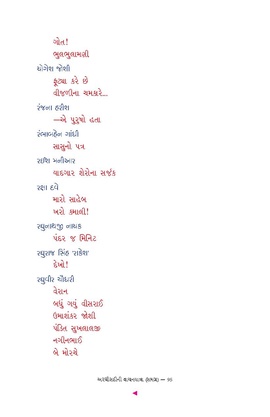 ગોત!
ભુલભુલામણી
યોગેશ જોશી
ફૂટ્યા કરે છે
વીજળીના ચમકારે...
રંજના હરીશ
—એ પુરુષો હતા
રંભાબહેન ગાંધી
સાસુનો પત્ર
રઈશ મનીઆર
વાદગાર શેરોના સર્જક
રક્ષા દવે
મારો સાહેબ
ખરો કમાલી!
રઘુનાથજી નાયક
પંદર જ મિનિટ
રઘુરાજ સિંહ 'રાકેશ'
દેખો!
રઘુવીર ચૌધરી
વેરાન
બધું ગયું વીસરાઈ
ઉમાશંકર જોશી
પંડિત સુખલાલજી
નગીનભાઈ
બે મોરચે
અરધીસદીની વાચનયાત્રા — 99